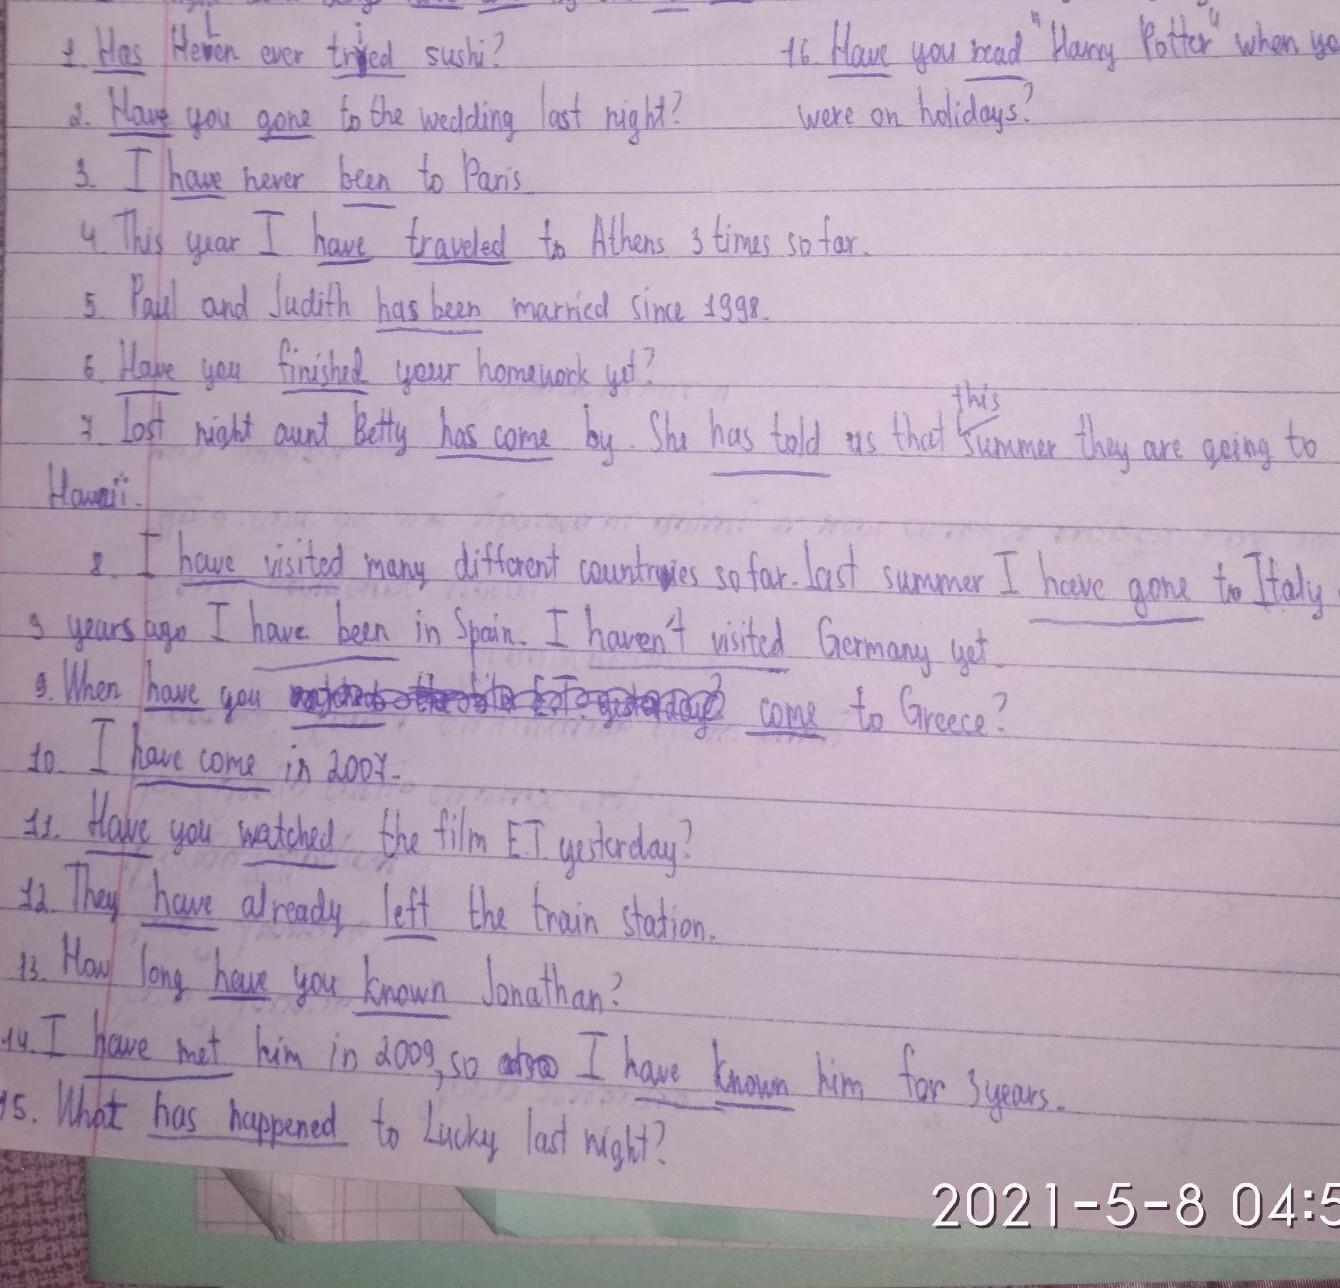 1. Has Helen ever tried sushi?
2. Have you gone to the wedding last night?
3. I have never been to Paris
4. This year I have traveled to Athens 3 times so far.
5. Paul and Judith has been married since 1998.
6. Have you finished your homework yet?
7. Last night aunt Betty has come by. She has told us that this summer they are going to
Hawaii.
8. I have visited many different countries so far. last summer I have gone to Italy.
3 years ago I have been in Spain. I haven't visited Germany yet
9. When have you come to Greece?
10. I have come in 2007.
11. Have you watched the film E.T. yesterday?
12. They have already left the train station.
13. How long have you known Jonathan?
14. I have met him in 2009, so I have known him for 3 years.
15. What has happened to Lucky last night?
16. Have you read "Harry Potter" when yo
were on holidays?
2021-5-8 04:5